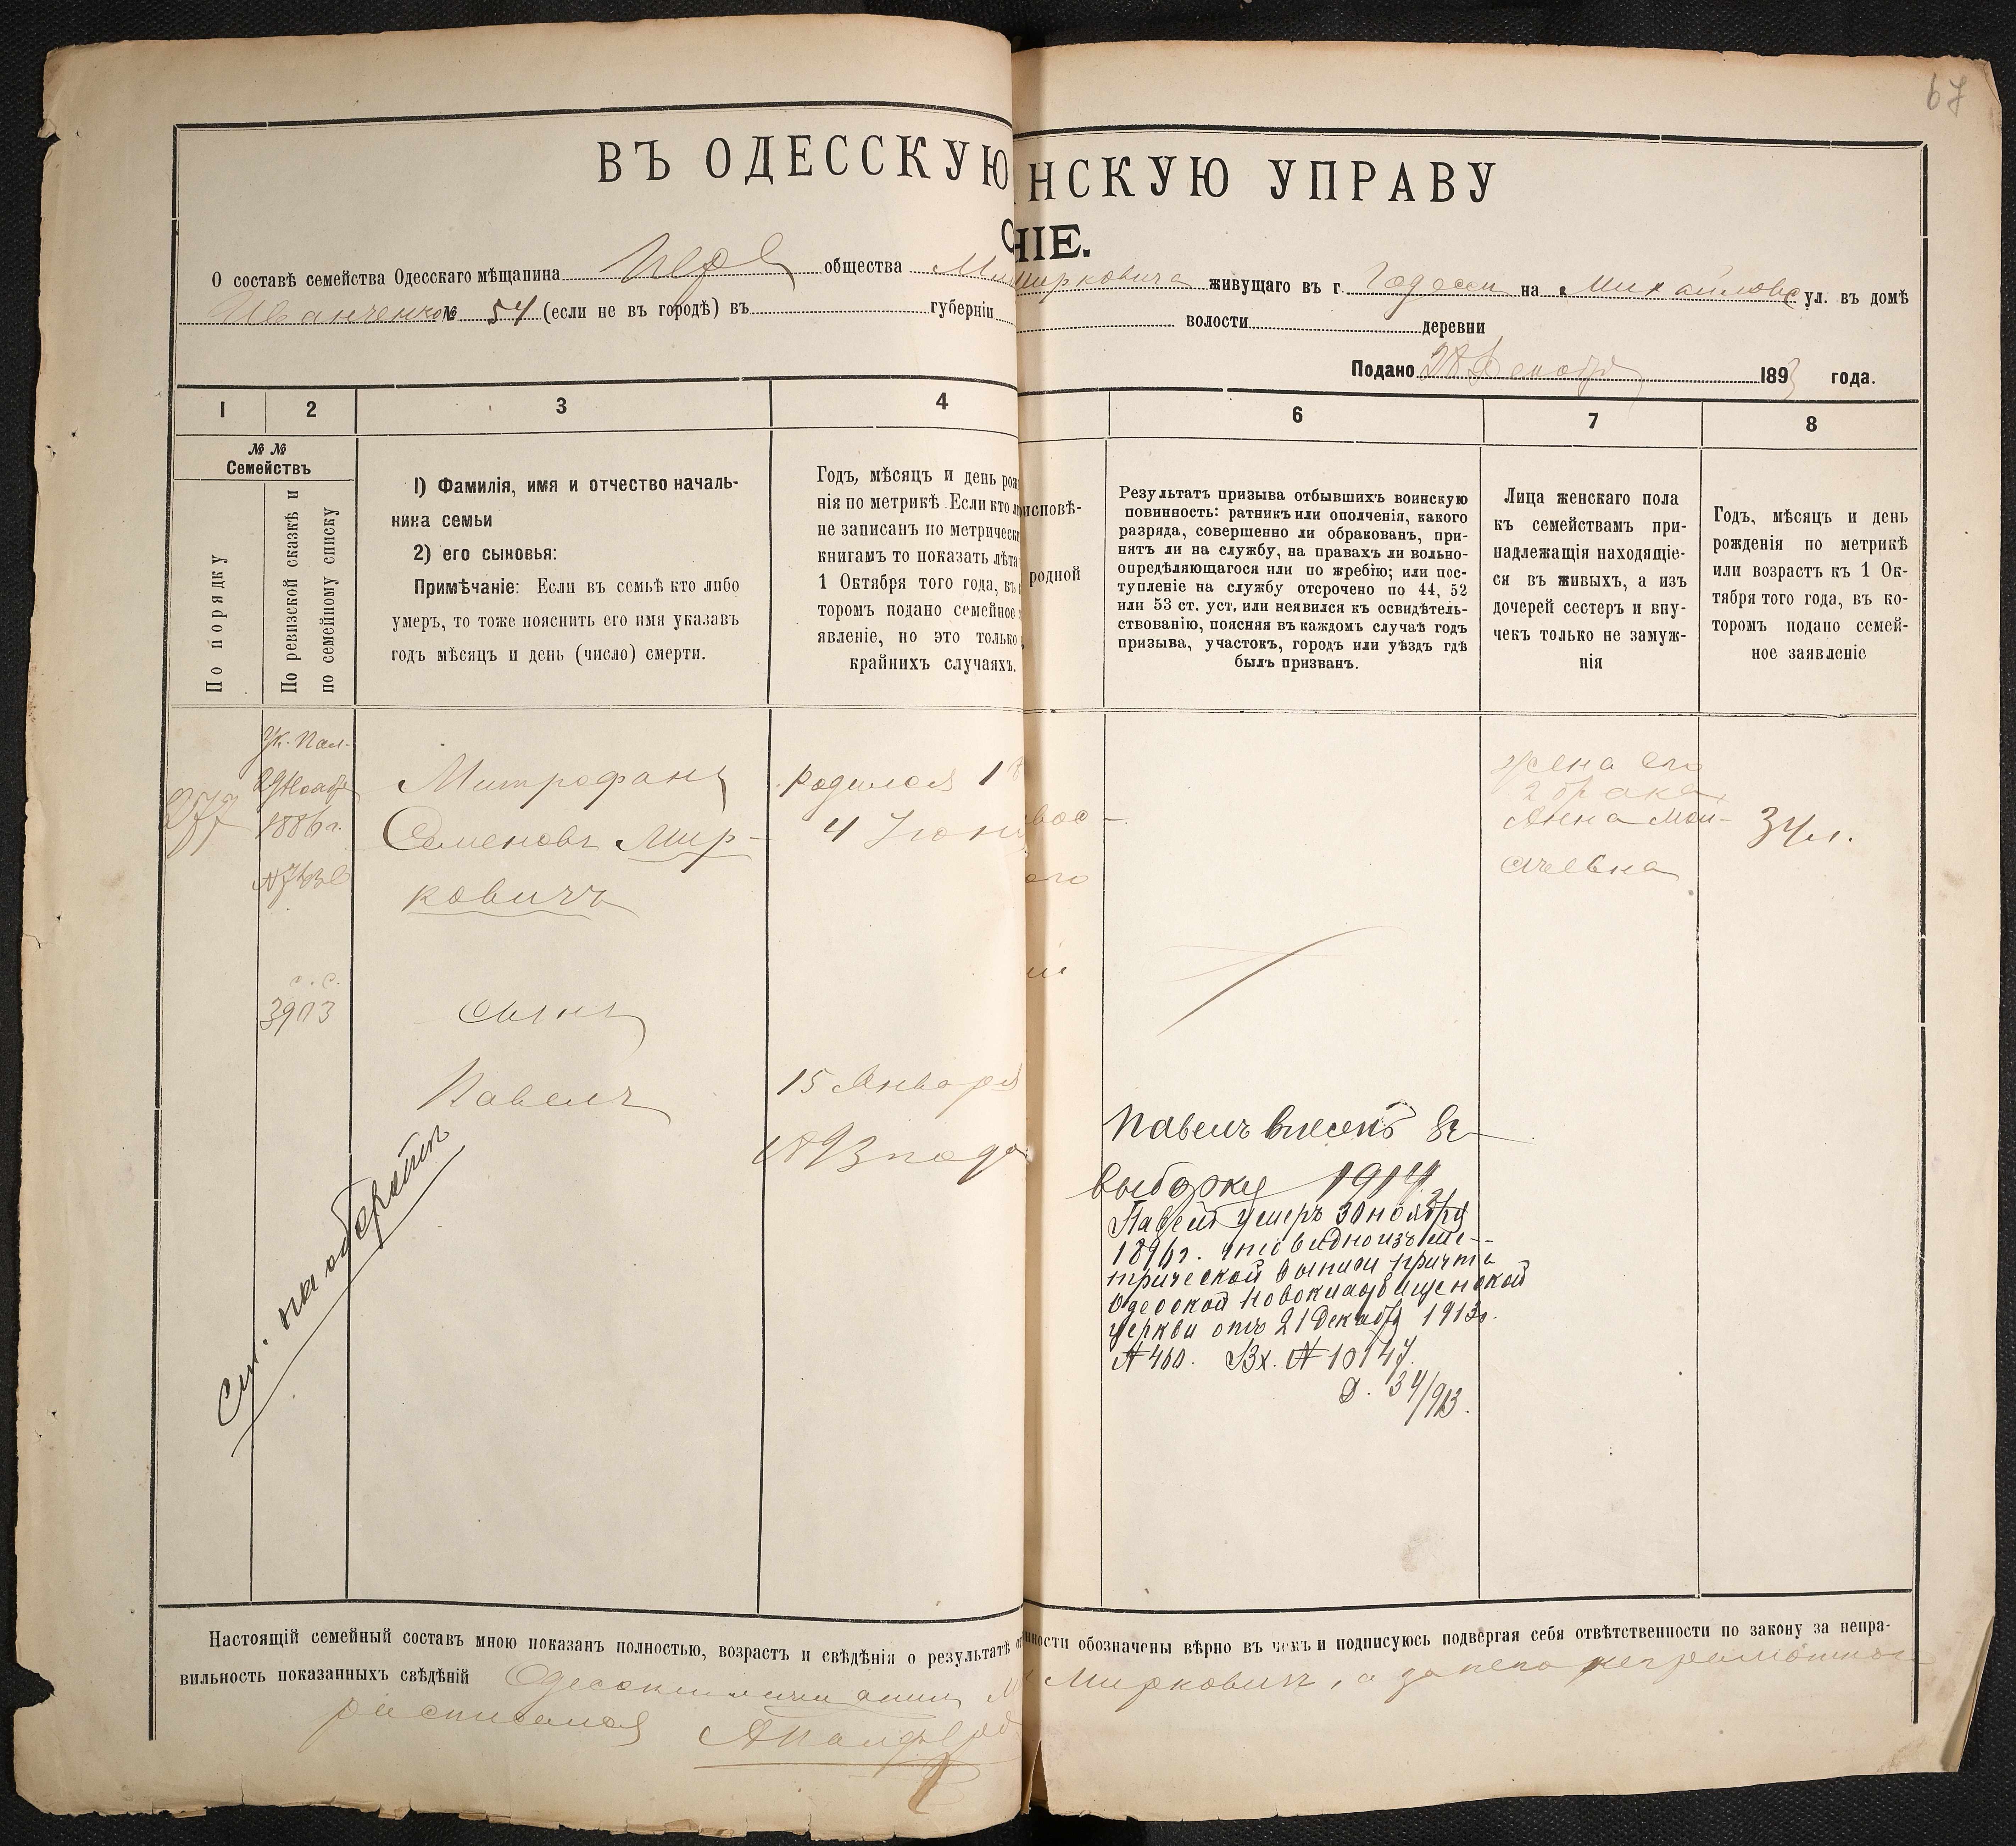 67
ВЪ ОДЕССКУЮ НСКУЮ УПРАВУ
НІЕ.
О составѣ семейства Одесскаго мѣщанина общества Мирковича живущаго въ г. Одессы на Михайловс ул. въ домѣ
Иванченков № 54 (если не въ городѣ) въ губерніи волости деревни
Подано 28 Декабря 1893 года.
1 2 3 4 6 7 8
№ №
Семействъ
По порядку
По ревизской сказкѣ и
по семейному списку
I) Фамилія, имя и отчество началь-
ника семьи
2) его сыновья:
Примѣчаніе: Если въ семьѣ кто либо
умеръ, то тоже пояснить его имя указавъ
годъ мѣсяцъ и день (число) смерти.
Годъ, мѣсяцъ и день рож
нія по метрикѣ. Если кто
не записанъ по метрическ
книгамъ то показать лѣта
1 Октября того года, въ
торомъ подано семейное
явленіе, но это только
крайнихъ случаяхъ.
исповѣ-
родной
Результатъ призыва отбывшихъ воинскую
повинность: ратникъ или ополченія, какого
разряда, совершенно ли обракованъ, при-
нятъ ли на службу, на правахъ ли вольно-
опредѣляющагося или по жребію; или пос-
тупленіе на службу отсрочено по 44, 52
или 53 ст. уст. или неявился къ освидѣтель-
ствованію, поясняя въ каждомъ случаѣ годъ
призыва, участокъ, городъ или уѣздъ гдѣ
былъ призванъ.
Лица женскаго пола
къ семействамъ при-
надлежащія находящіе-
ся въ живыхъ, а изъ
дочерей сестеръ и вну-
чекъ только не замуж-
нія
Годъ, мѣсяцъ и день
рожденія по метрикѣ
или возрастъ къ 1 Ок-
тября того года, въ ко-
торомъ подано семей-
ное заявленіе
277
Ук. Пал.
29 Нояб
1886 г.
Митрофанъ
Семеновъ Мир-
ковичъ
родился 18
4 Іюн
вос-
ого
жена его
2 брака
Анна Мои-
сеевна
34 л.
с. с.
3903
сынъ
Павелъ
15 Января
1893 года
См. на оборотѣ
Павелъ внесенъ въ
выборку 1914
Павелъ умеръ 30 ноября
1896 г. что видно изъ ме-
трической выписи причта
Одесской Новокладбищенской
церкви отъ 21 Декабря 1913 г.
№ 460. Вх. № 10147.
д. 34/913.
Настоящій семейный составъ мною показанъ полностью, возрастъ и свѣдѣнія о результатѣ нности обозначены вѣрно въ чемъ и подписуюсь подвергая себя отвѣтственности по закону за непра-
вильность показанныхъ свѣдѣній Одесскій мѣщанинъ М Мирковичъ, а за него неграмотнаго
расписался